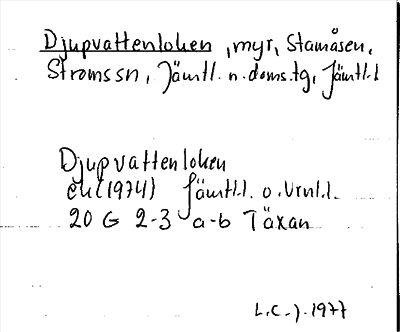 Djupvattenloken, myr, Stamåsen,
Ströms sn, Jämtl. n. doms.tg, Jämtl.l
Djupvattenloken
ek (1974) Jämtl.l. o. Vrnl.l.
20 G 2-3 a-b Täxan
L.C-j. 1977